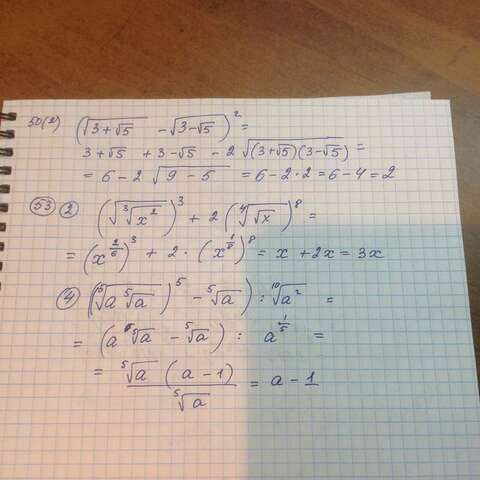 50(2) (√(3+√5) - √(3-√5))² =
3+√5 + 3-√5 - 2√((3+√5)(3-√5)) =
= 6-2√(9-5) = 6-2·2 = 6-4 = 2
53 2 (√(∛(x²)))³ + 2(∜(√x))⁸ =
= (x^(2/6))³ + 2·(x^(1/8))⁸ = x + 2x = 3x
4 ((⁵√(a ⁵√a))⁵ - ⁵√a) : ¹⁰√(a²) =
= (a ⁵√a - ⁵√a) : a^(1/5) =
= (⁵√a (a-1))/(⁵√a) = a-1